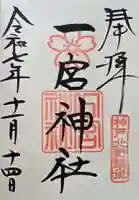 奉拝
一宮神社
令和七年十二月十四日